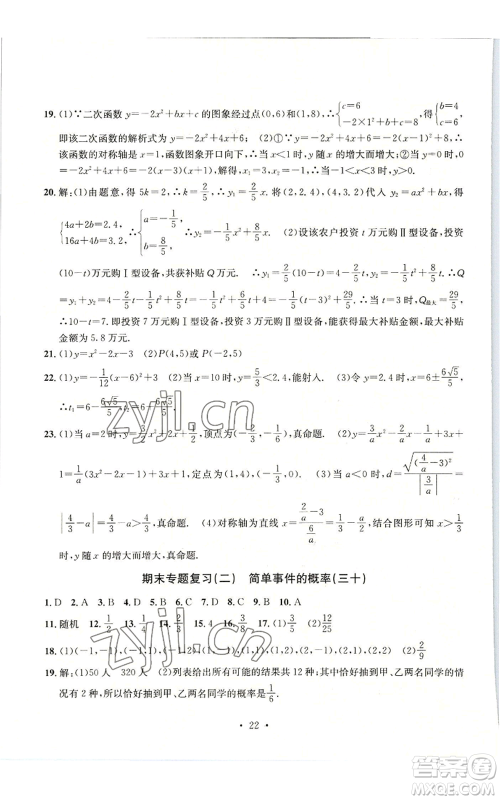 19. (1)∵二次函数 y=-2x²+bx+c 的图象经过点(0,6)和(1,8),∴{c=6 -2×1²+b+c=8, 得{b=4 c=6,
即该二次函数的解析式为 y=-2x²+4x+6; (2)①∵y=-2x²+4x+6,∴
该函数的对称轴是 x=1,函数图象开口向下,∴当 x<1 时,y 随 x 的增大而增大;②当
y=0 时,0=-2x²+4x+6,解得,x₁=3,x₂=-1.
20. 解:(1)由题意,得 5k=2,∴k=2/5,∴y₁=2/5x. 将(2,2.4),(4,3.2)代入 y₂=ax²+bx,得
{4a+2b=2.4, 16a+4b=3.2, ∴{a=-1/5, b=8/5, ∴y₂=-1/5x²+8/5x. (2)设该农户投资 t 万元购Ⅱ型设备,投资
(10-t)万元购Ⅰ型设备,共获补贴 Q 万元. ∴y₁=2/5(10-t)=4-2/5t,y₂=-1/5t²+8/5t. ∴Q=
y₁+y₂=4-2/5t-1/5t²+8/5t=-1/5t²+6/5t+4=-1/5(t-3)²+29/5. ∴当 t=3 时,Q最大=29/5.
∴10-t=7. 即投资 7 万元购Ⅰ型设备,投资 3 万元购Ⅱ型设备,能获得最大补贴金额,最大补贴金
额为 5.8 万元.
21. (1)y=x²-2x-3 (2)P(4,5)或 P(-2,5)
22. (1)y=-1/12(x-6)²+5 (2)当 x=10 时,
能射入. (3)令
时,x=6±6√5/5,
∴t₁=6-6√5/5,
23. (1)当 a=2 时,y=
,顶点为
,真命题. (2)y=3/a x²-(2/a)x-1/a+3x+
1=1/a(3x²-2x-1)+3x+1,定点为(-1/3,0). 真命题. (3)当 a<0 时,d=√(4/a-3)²/|3/a|=
|4/3-a|=4/3-a>4/3,真命题. (4)对称轴为直线
,结合图形可知,当
时,y 随 x 的增大而增大,真命题.
期末专题复习(二) 简单事件的概率(三十)
1. D 2. A 3. D 4. C 5. D 6. C 7. D 8. B 9. B 10. A
11. 随机 12. 1/2 13.
16. (1)
(2) 17. (1)2/5 (2)12/25
18. (1)
(2)2/9
19. 解:(1)50 人 320 人 (2)列表给出所有可能的结果共 12 种;其中恰好抽到甲、乙两名同学的
情况有 2 种,所以恰好抽到甲、乙两名同学的概率是1/6.
· 22 ·
zyjl.cn
zyjl.cn
答案圈
MXQE.COM